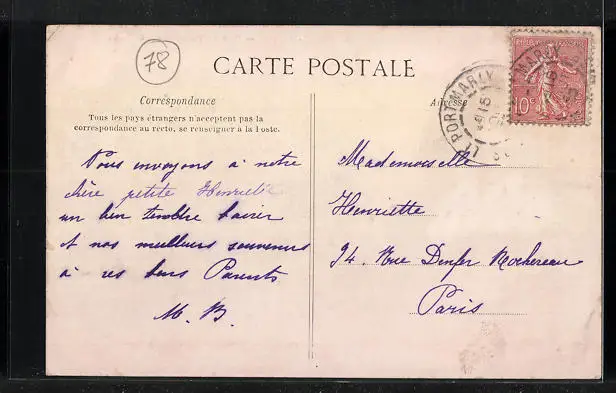 78
CARTE POSTALE
Correspondance
Tous les pays étrangers n'acceptent pas la
correspondance au recto, se renseigner à la Poste.
Nous envoyons à notre
chère petite Henriette
un bien tendre baiser
et nos meilleurs souvenirs
à ses bons Parents
M. B.
Adresse
LE PORT MARLY
10c
Mademoiselle
Henriette
94. Rue Denfer Rochereau
Paris